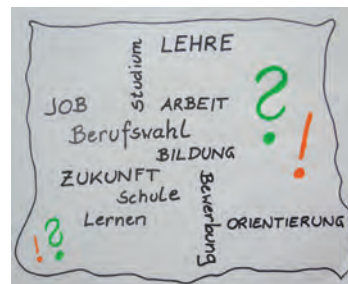 LEHRE
Studium
JOB
ARBEIT
?
!
Berufswahl
BILDUNG
ZUKUNFT
Schule
Bewerbung
Lernen
ORIENTIERUNG
!?